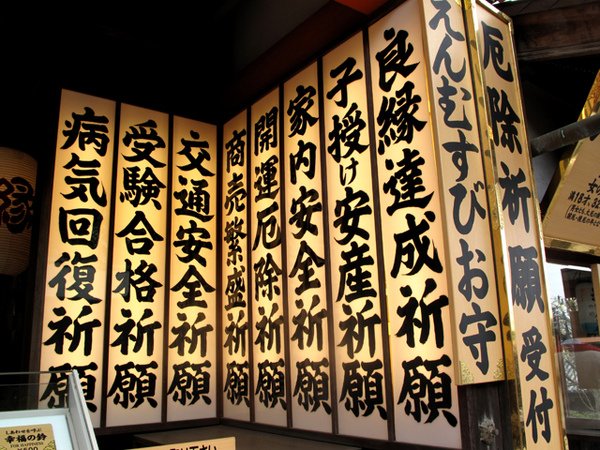 厄除祈願受付
えんむすびお守
良縁達成祈願
子授け安産祈願
家内安全祈願
開運厄除祈願
商売繁盛祈願
交通安全祈願
受験合格祈願
病気回復祈願
縁
しあわせを呼ぶ
幸福の鈴
FOR HAPPINESS